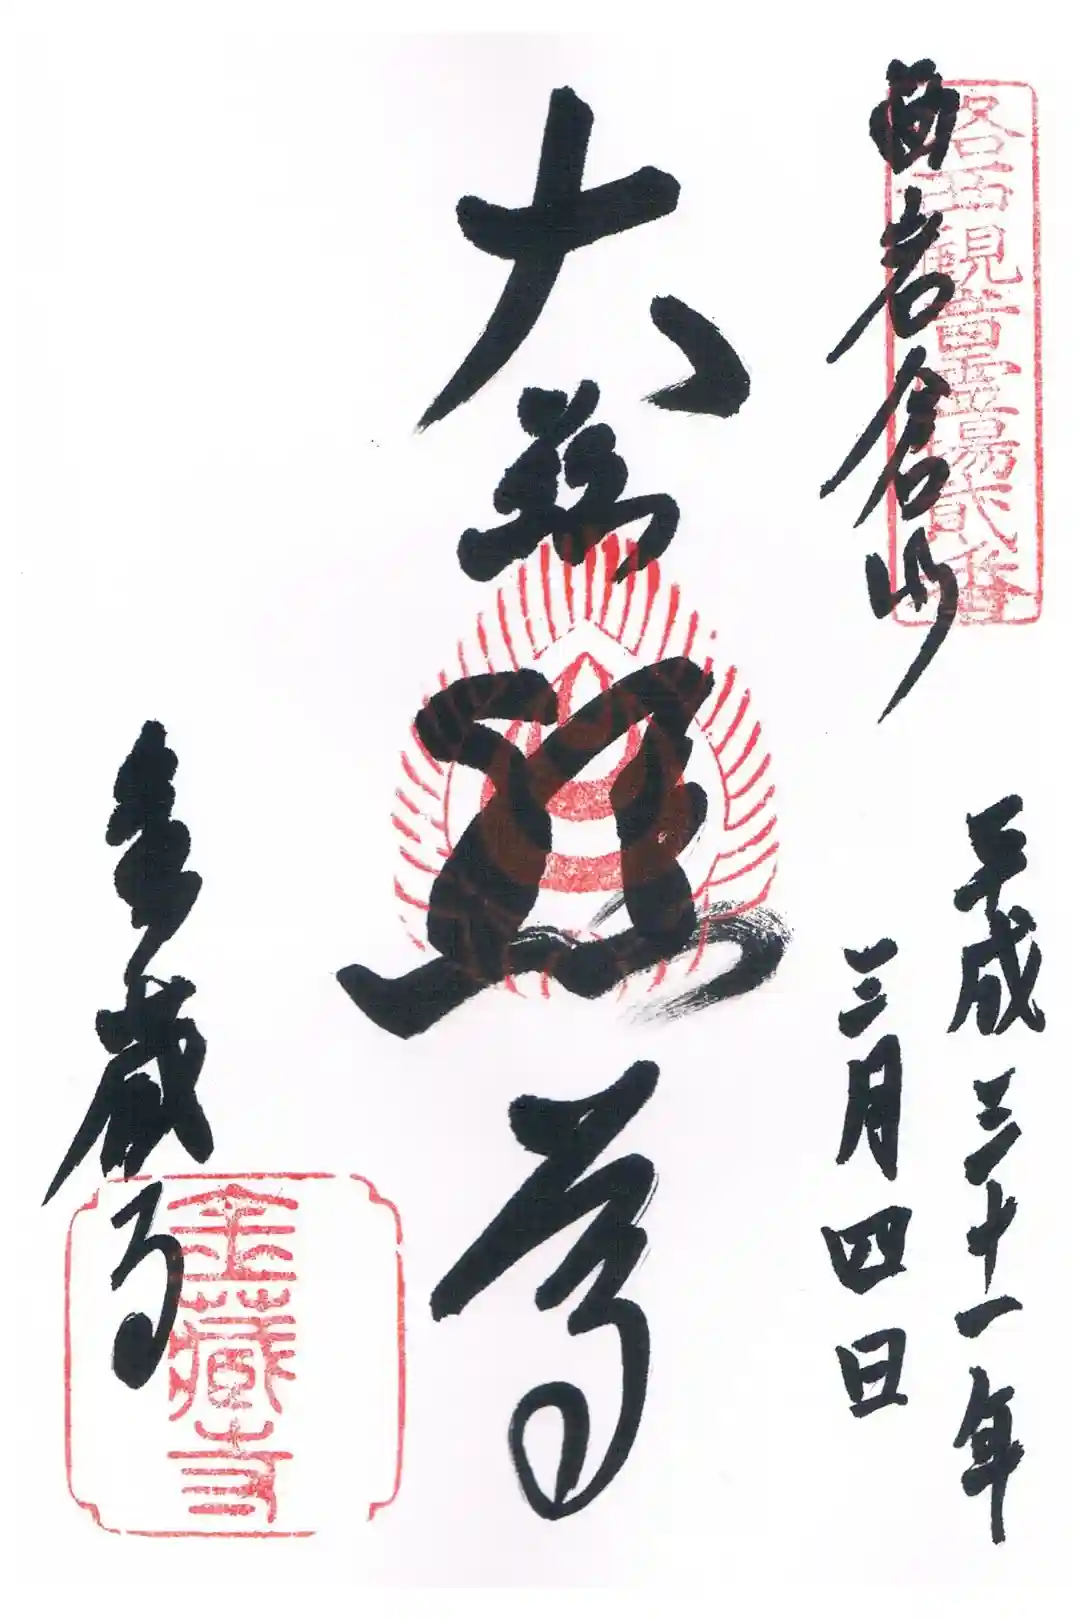 洛西観音霊場弐番
西岩倉山
平成三十一年
三月四日
大慈照尊
金蔵寺
金蔵寺